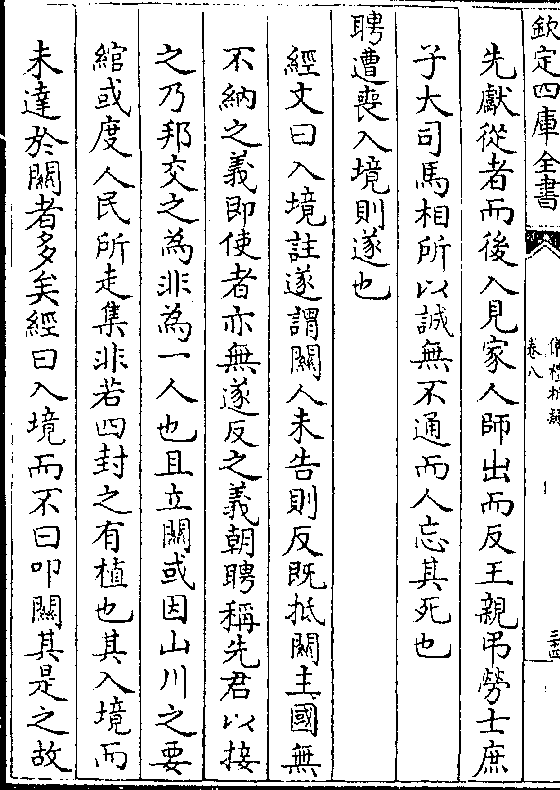 欽定四庫全書
卷八
三十四
先獻從者而後入見家人師出而反王親弔勞士庶
子大司馬相所以誠無不通而人忘其死也
聘遭喪入境則遂也
經文曰入境註遂謂關人未告則反既抵關主國無
不納之義即使者亦無遂反之義朝聘稱先君以接
之乃邦交之為非為一人也且立關或因山川之要
綰或度人民所走集非若四封之有植也其入境而
未達於關者多矣經曰入境而不曰叩關其是之故